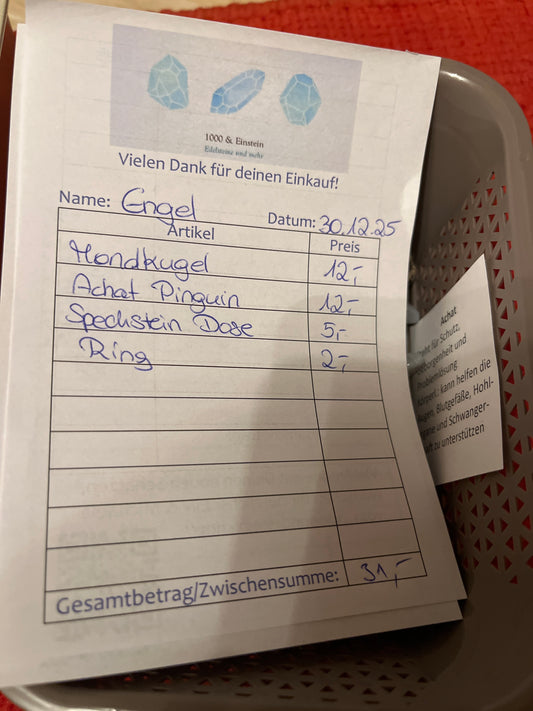 1000 & Einstein
Edelsteine und mehr
Vielen Dank für deinen Einkauf!
Name: Engel Datum: 30.12.25
Artikel Preis
Mondkugel 12,-
Achat Pinguin 12,-
Speckstein Dose 5,-
Ring 2,-
Gesamtbetrag/Zwischensumme: 31,-
Achat
für Schutz,
und
Problemlösung
kann helfen die
Augen, Blutgefäße, Hohl-
und Schwanger-
zu unterstützen